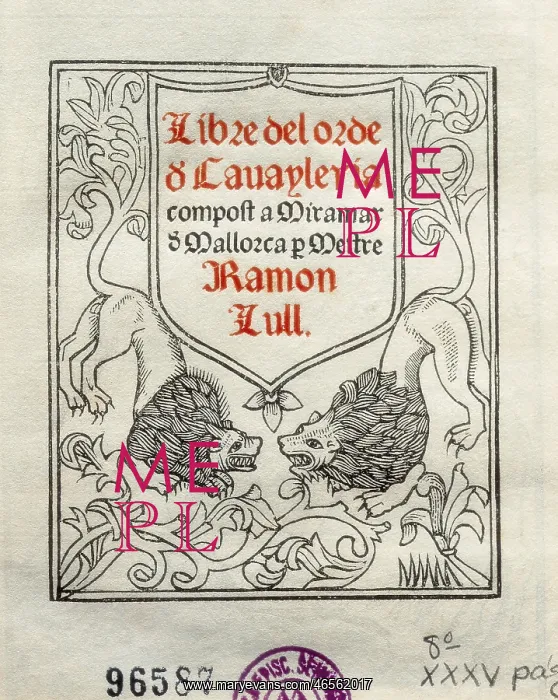 Libre del orde
δ Cauayleria
compost a Miramar
δ Mallorca p Mestre
Ramon
Lull.
ME
PL
ME
PL
8º
XXXV pás
96587
www.maryevans.com/46562017